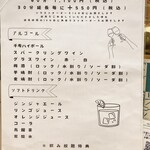 90分 1,100円（税込）
30分延長毎に＋550円（税込）
アルコール
千寿ハイボール
スパークリングワイン
グラスワイン 赤・白
梅酒（ロック/水割り/ソーダ割）
芋焼酎（ロック/水割り/ソーダ割）
麦焼酎（ロック/水割り/ソーダ割）
ソフトドリンク
ジンジャエール
リンゴジュース
オレンジジュース
コーラ
烏龍茶
緑茶